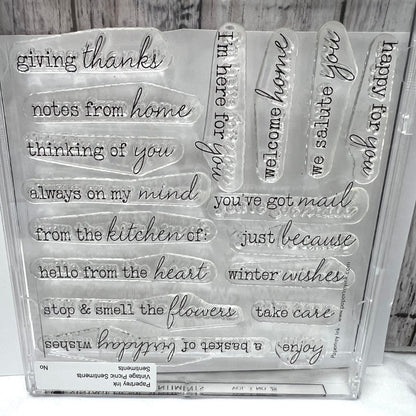 giving thanks
notes from home
thinking of you
always on my mind
from the kitchen of:
hello from the heart
stop & smell the flowers
a basket of birthday wishes
I'm here for you
welcome home
we salute you
happy for you
you've got mail
just because
winter wishes
take care
enjoy:
Papertrey Ink
Vintage Picnic Sentiments
Sentiments
No